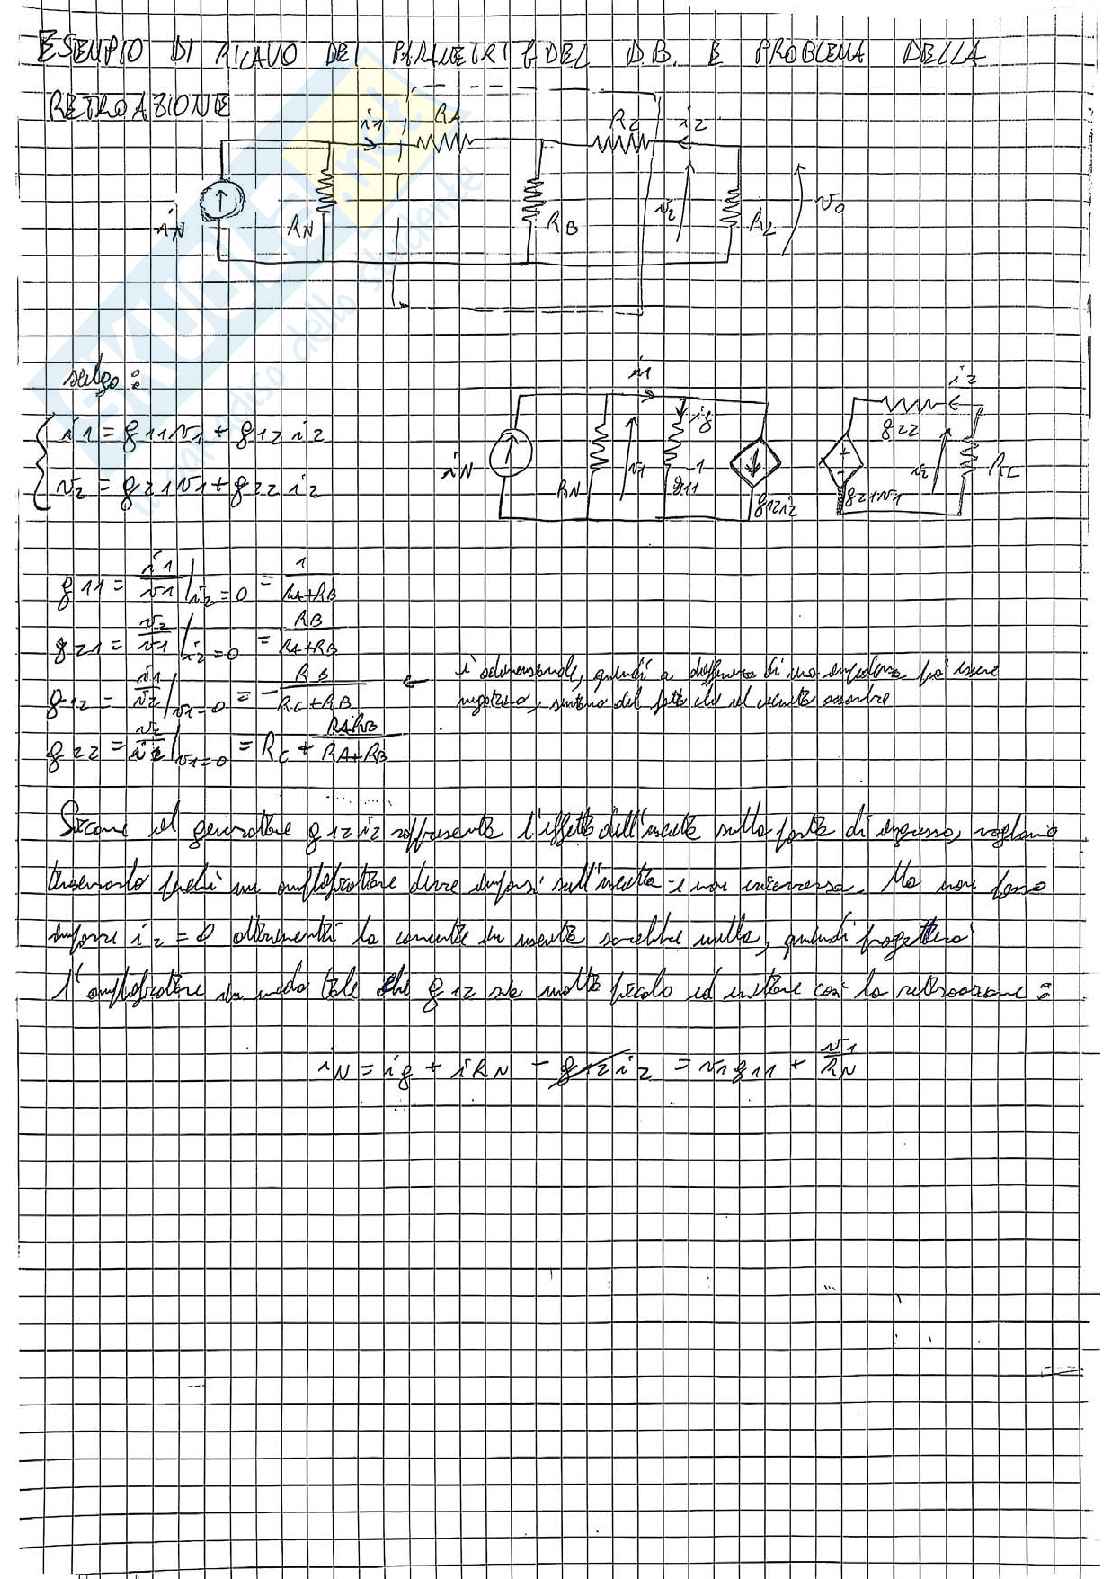 ESEMPIO DI RICAVO DEI PARAMETRI g DEL D.B. E PROBLEMA DELLA
RETROAZIONE
i1 RA RC i2
iN RN RB v2 RL v0
salgo:
i1 = g11v1 + g12 i2
v2 = g21v1 + g22 i2
i1 ig g22 i2
iN RN v1 g11^-1 g12i2 g21v1 v2 RL
g11 = i1/v1 |i2=0 = 1/(RA+RB)
g21 = v2/v1 |i2=0 = RB/(RA+RB)
g12 = i1/i2 |v1=0 = - RB/(RC+RB) ← è adimensionale, quindi a differenza di una impedenza può essere
negativo, sintomo del fatto che il circuito
g22 = v2/i2 |v1=0 = RC + RARB/(RA+RB)
Siccome il generatore g12 i2 rappresenta l'effetto dell'uscita sulla porta di ingresso, vogliamo
perché un amplificatore deve sull'uscita e non viceversa. Ma non posso
imporre i2 = 0 altrimenti la corrente in uscita sarebbe nulla, quindi progetterò
l'amplificatore in modo tale che g12 sia molto piccolo ed evitare così la retroazione:
iN = ig + iRN - g12 i2 = v1 g11 + v1/RN
SKUOLA.net
il paradiso dello studente